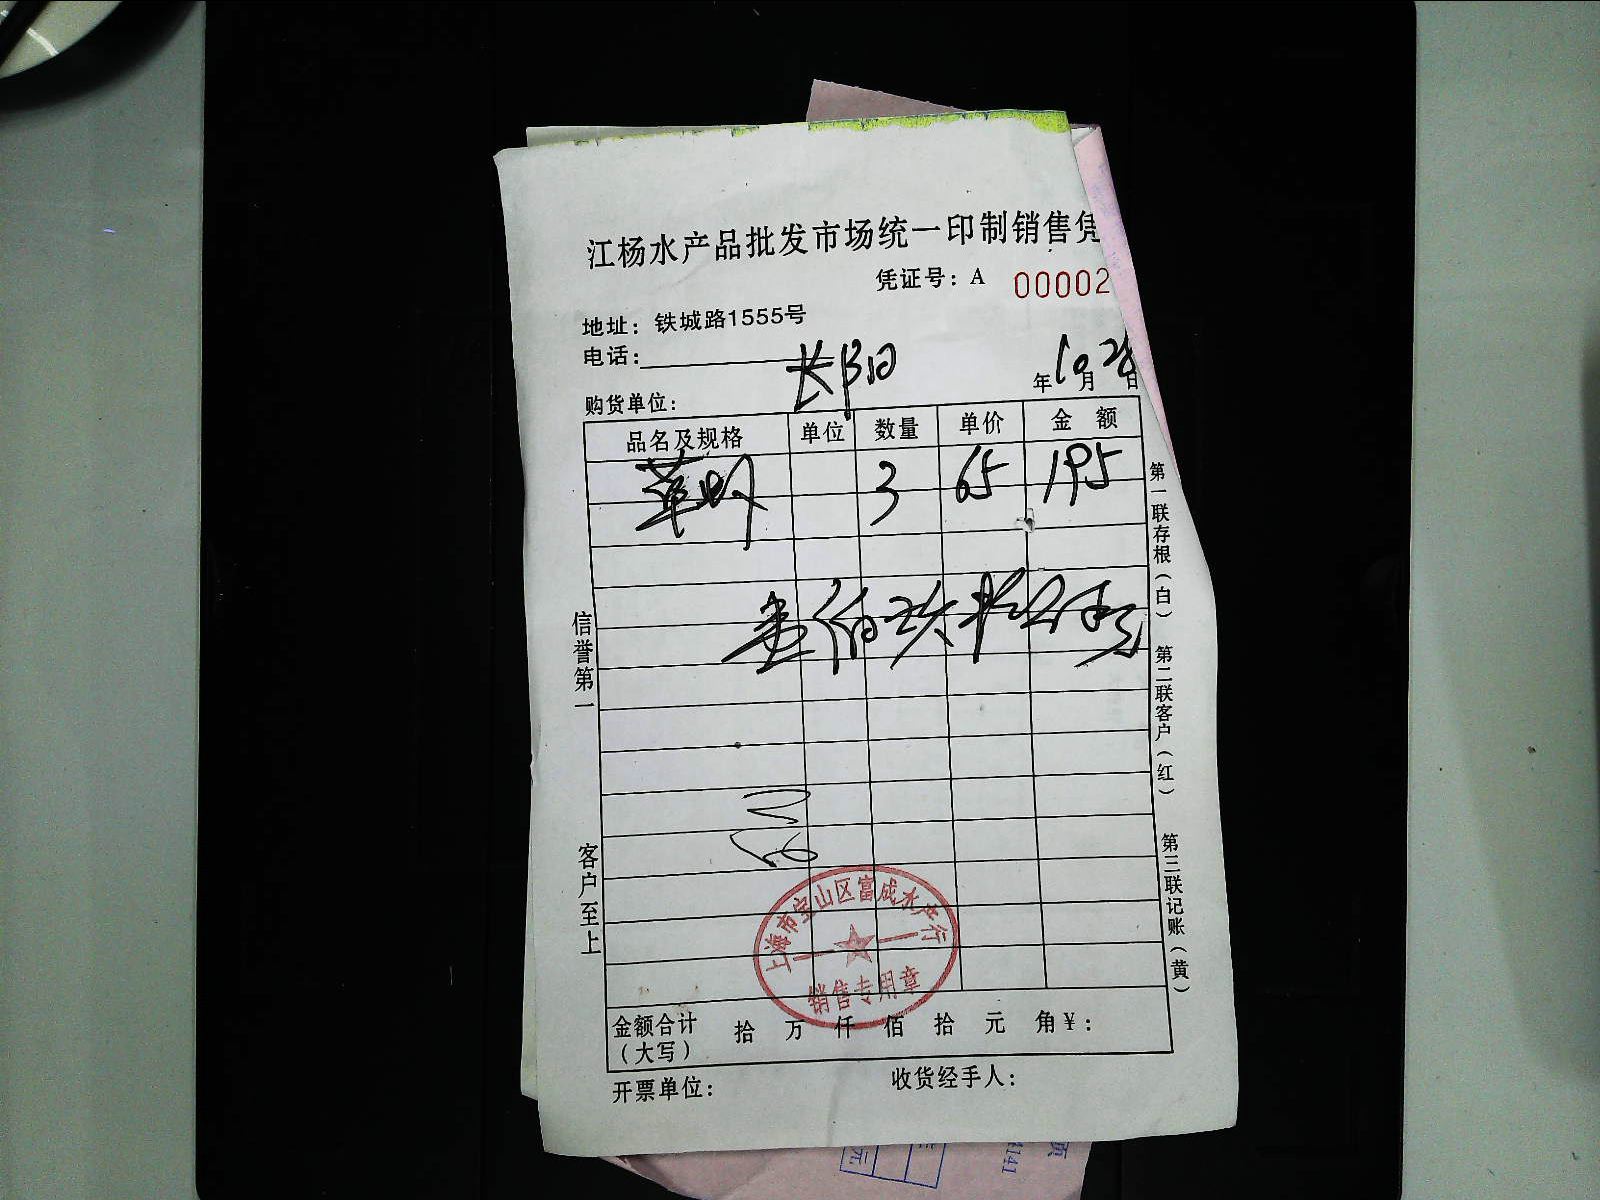 江杨水产品批发市场统一印制销售凭
凭证号：A 00002
地址：铁城路1555号
电话：
购货单位：长阳
年10月28日
品名及规格 单位 数量 单价 金额
草虾 3 65 195
壹佰玖拾伍元
信誉第一
客户至上
第一联存根（白）
第二联客户（红）
第三联记账（黄）
上海市宝山区富成水产行
销售专用章
金额合计（大写） 拾 万 仟 佰 拾 元 角 ¥：
开票单位： 收货经手人：
元
4141